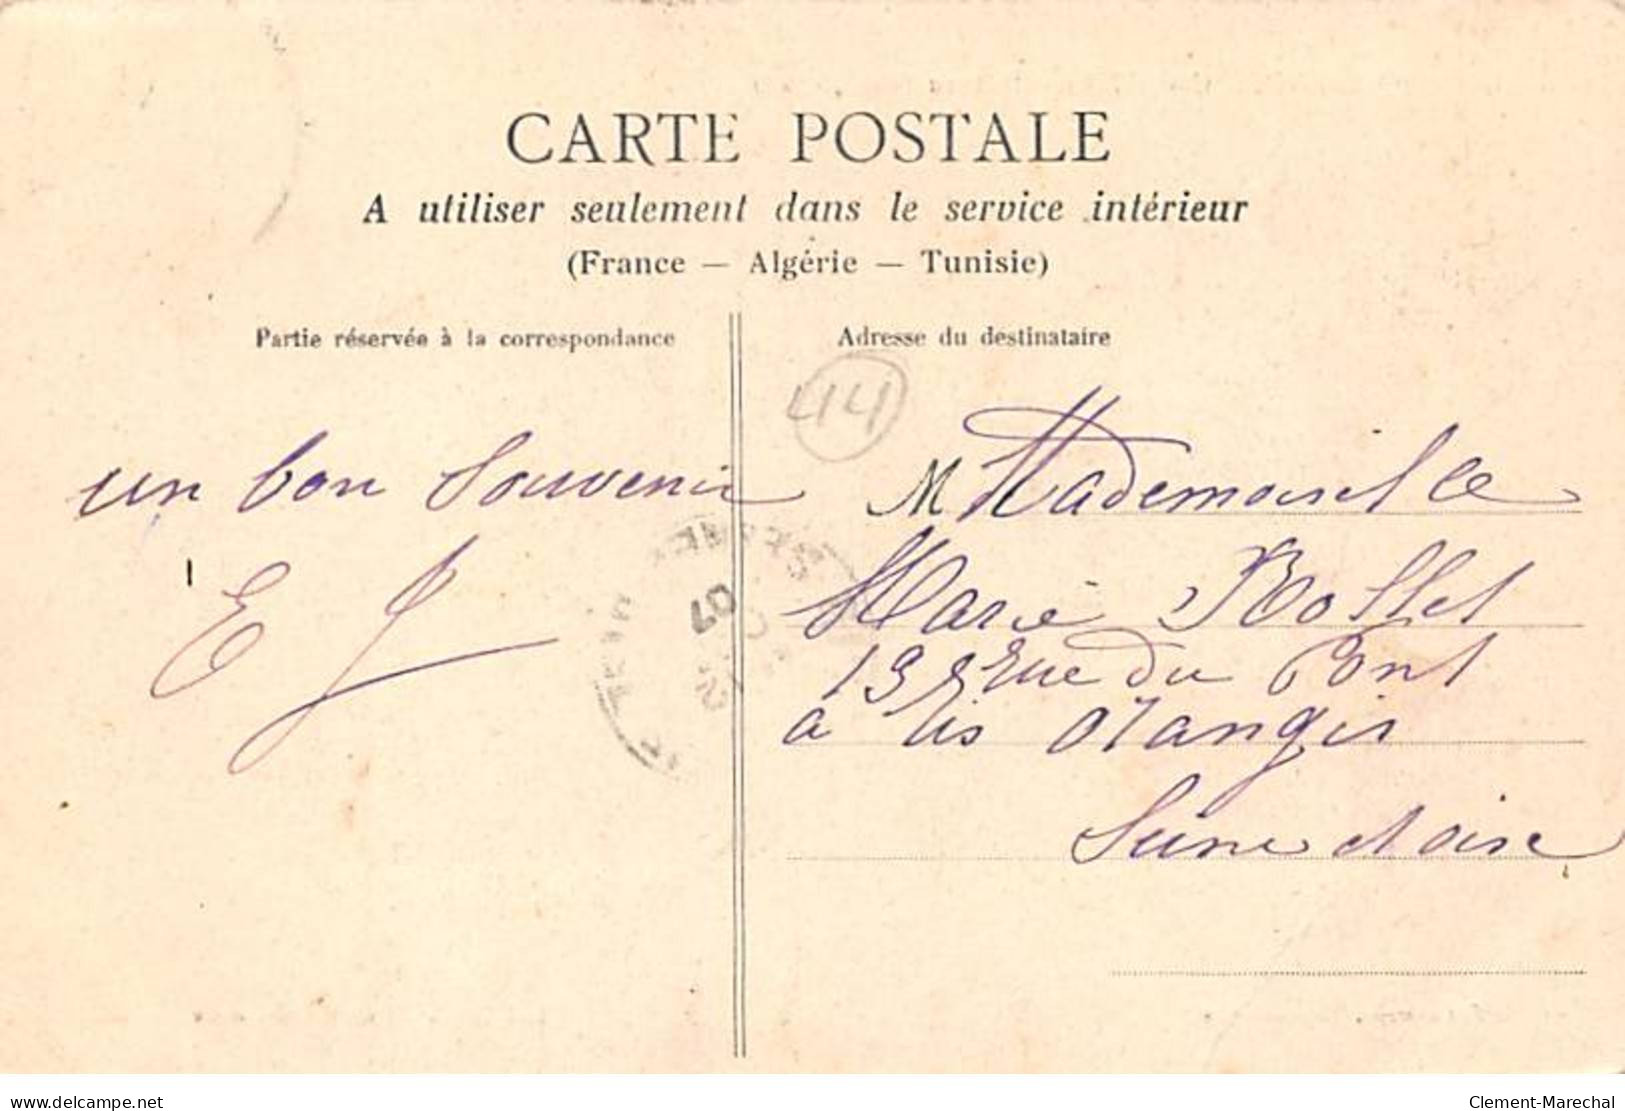 CARTE POSTALE
A utiliser seulement dans le service intérieur
(France — Algérie — Tunisie)
Partie réservée à la correspondance
Adresse du destinataire
44
un bon Souvenir
E J
M Mademoiselle
Marie Rollet
rue du Pont
a Ris Orangis
Seine et oise
07
delcampe.net
Clement-Marechal